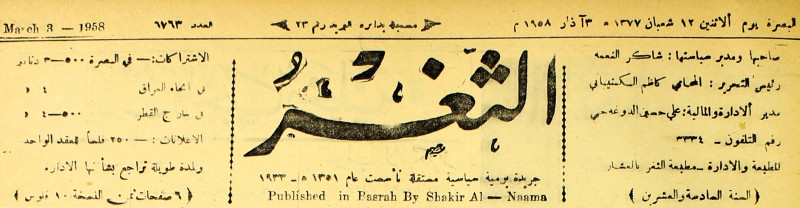 البصرة يوم الاثنين ١٢ شعبان ١٣٧٧ هـ ٣ آذار ١٩٥٨ م
مسجلة بدائرة البريد رقم ٢٣
العدد ٦٧٦٣
March 3 — 1958
صاحبها ومدير سياستها : شاكر النعمه
رئيس التحرير : المحامي كاظم
مدير الادارة والمالية : علي حسين
رقم التلفون – ٣٣٣٤
المطبعة والادارة – مطبعة الثغر بالعشار
( السنة السادسة والعشرين )
الثغر
جريدة يومية سياسية مستقلة تأسست عام ١٣٥١ هـ – ١٩٣٣
Published in Basrah By Shakir Al — Naama
الاشتراكات :– في البصرة ٥٠٠–٣ دنانير
في انحاء العراق ٤ »
في خارج القطر ٥٠٠–٤ »
الاعلانات :– ٢٥٠ فلساً للعقد الواحد
ولمدة طويلة تراجع بشأنها الادارة
( ٦ صفحات ثمن النسخة ١٠ فلوس )